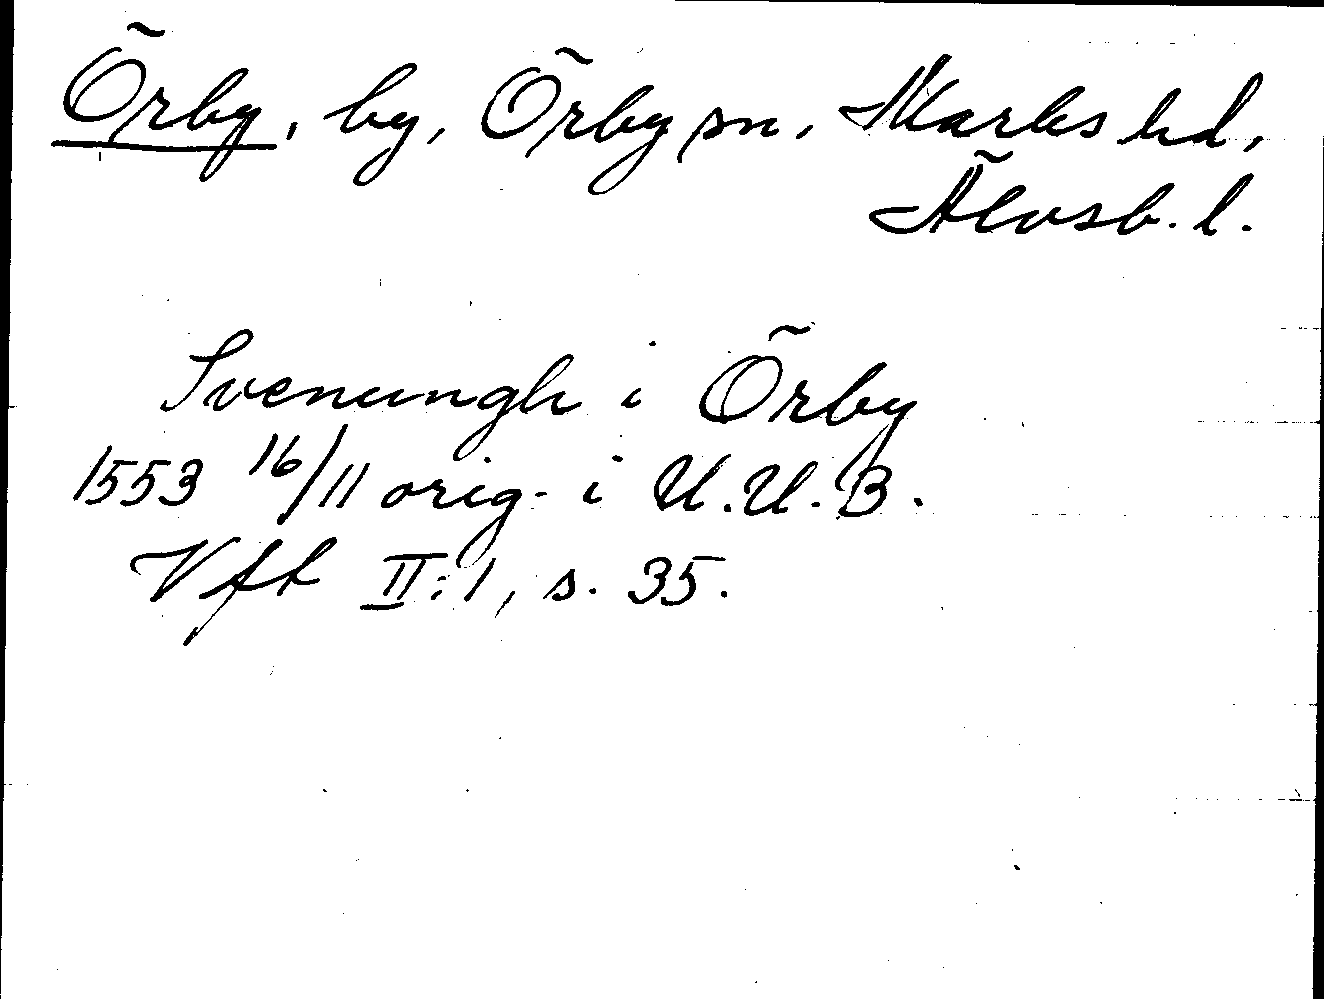 Örby, by, Örby sn, Marks hd,
Älvsb. l.
Svenungh i Örby
1553 16/11 orig. i U.U.B.
Vft II:1, s. 35.